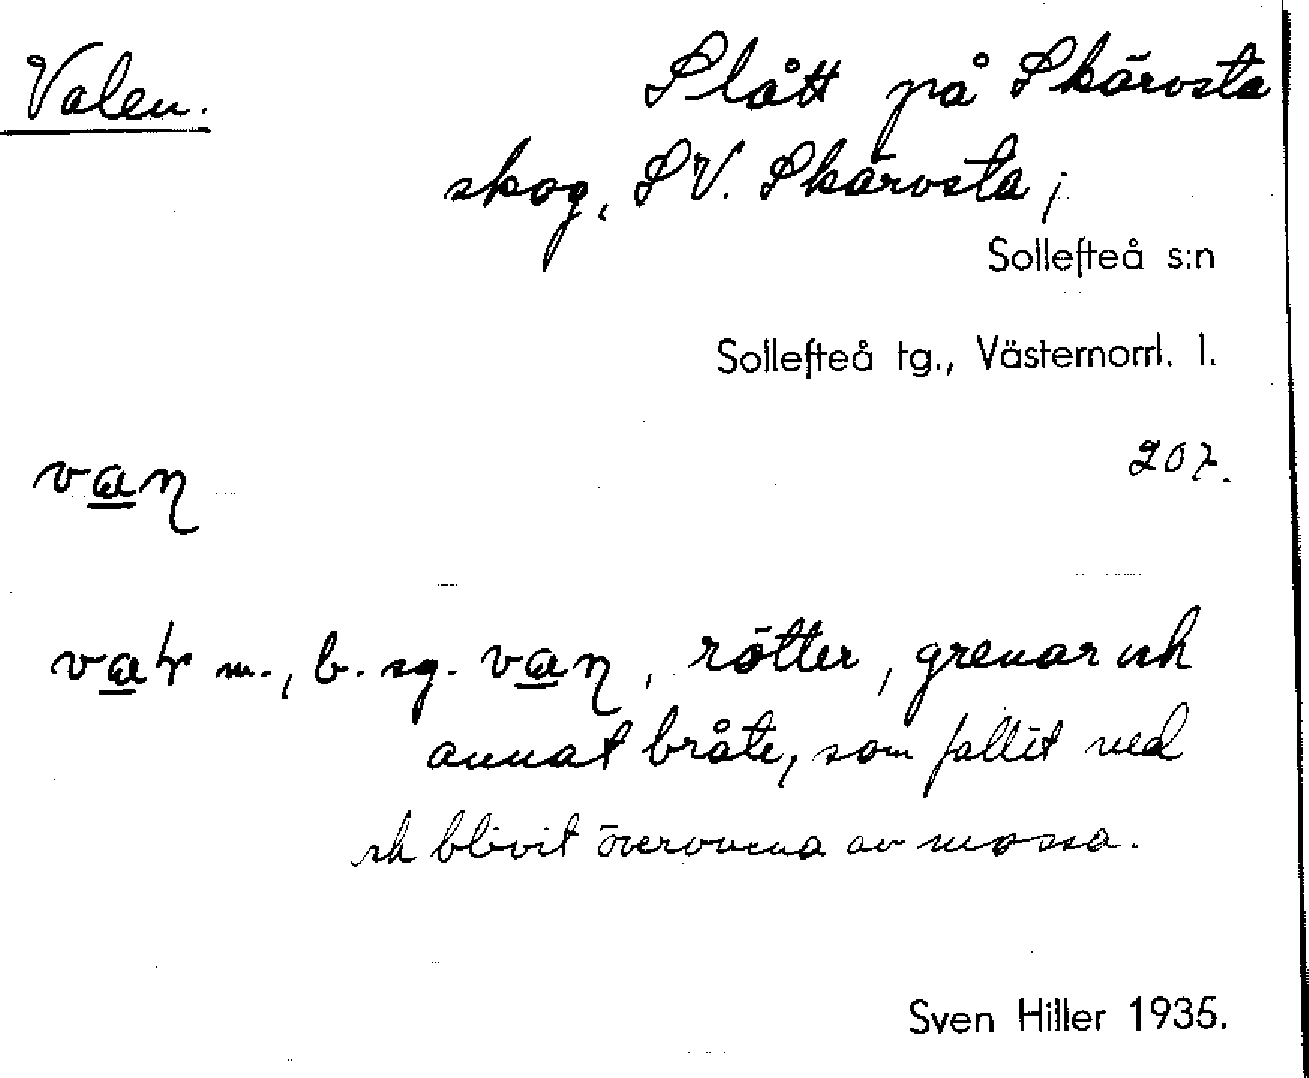 Valen. Slått på Skärvsta
skog, SV. Skärvsta;
Sollefteå s:n
Sollefteå tg., Västernorrl. l.
207.
van
m., b. sg. van, rötter, grenar och
annat bråte, som fallit ned
och blivit övervuxna av mossa.
Sven Hiller 1935.